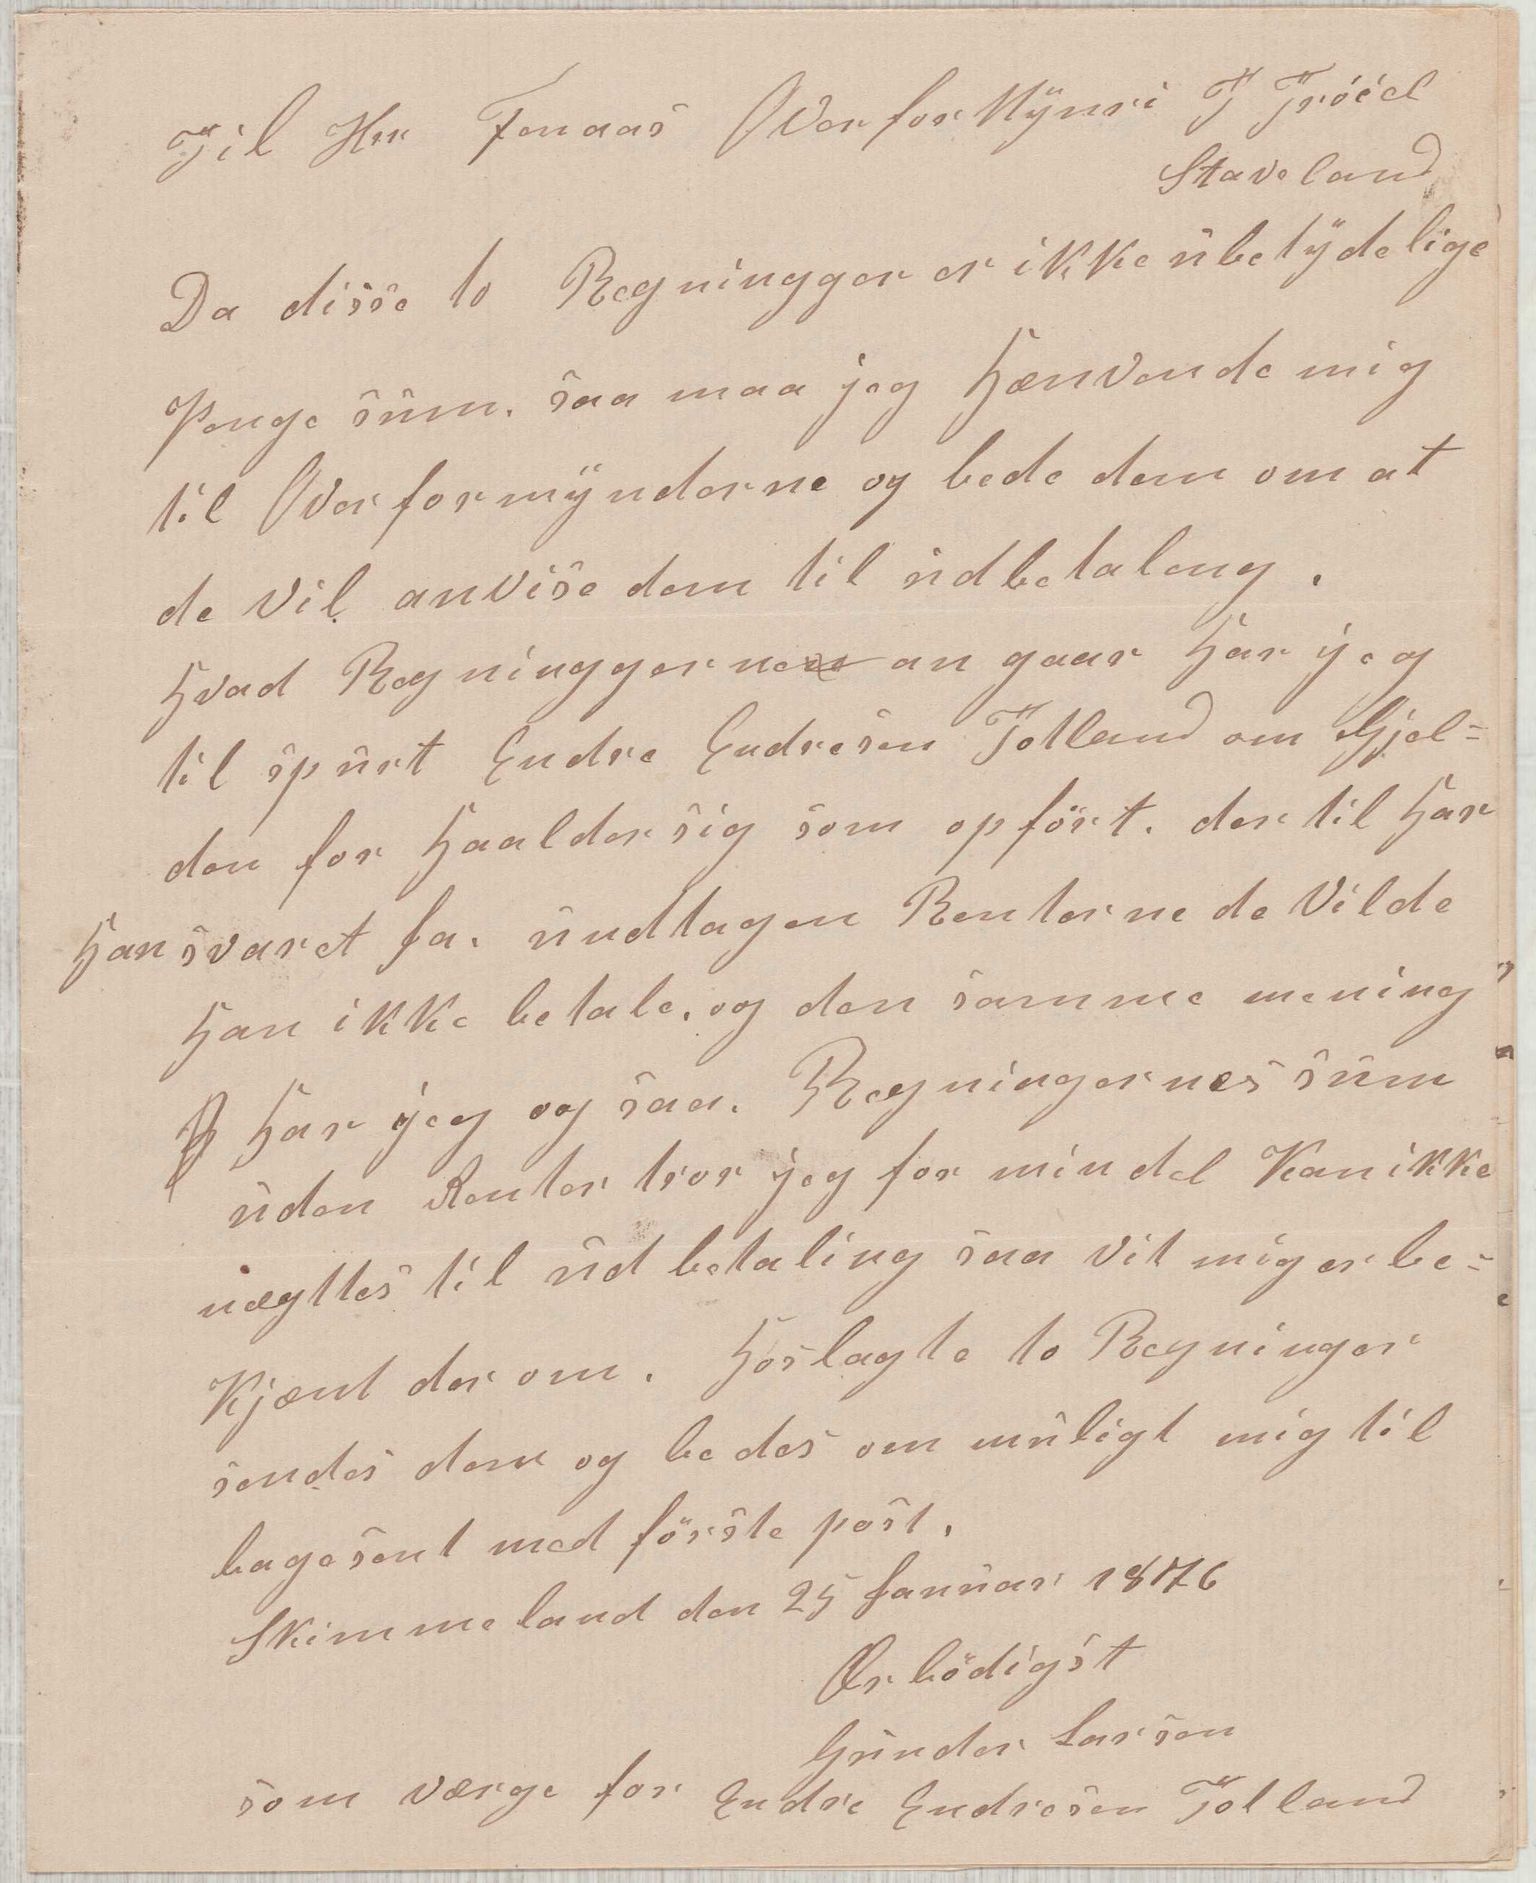 Til Hrr Tonaas Overformynri T Tröiel
Staveland
Da disse to Regningger er ikke ubetydelige
Penge sum. saa maa jeg hænvende mig
til Overformynderne og bede dem om at
de vil anvise dem til udbetaleng.
hvad Regninggerne an gaar har jeg
til spurt Endre Endresen Tolland om Gjel=
den for haalder sig som opfört. der til har
han svaret Ja. undtagen Renterne de vilde
han ikke betale. og den samme mening
har jeg og saa. Regningernes sum
uden Renter tror jeg for min del kan ikke
nægttes til ud betaling saa vit mig er be=
kjent der om. hoslagte to Regninger
sendes dem og bedes om muligt mig til
bagesent med förste post.
Skimmeland den 25 Januar 1876
Ærbödigst
Gunder Larsen
som værge for Endre Endresen Tolland